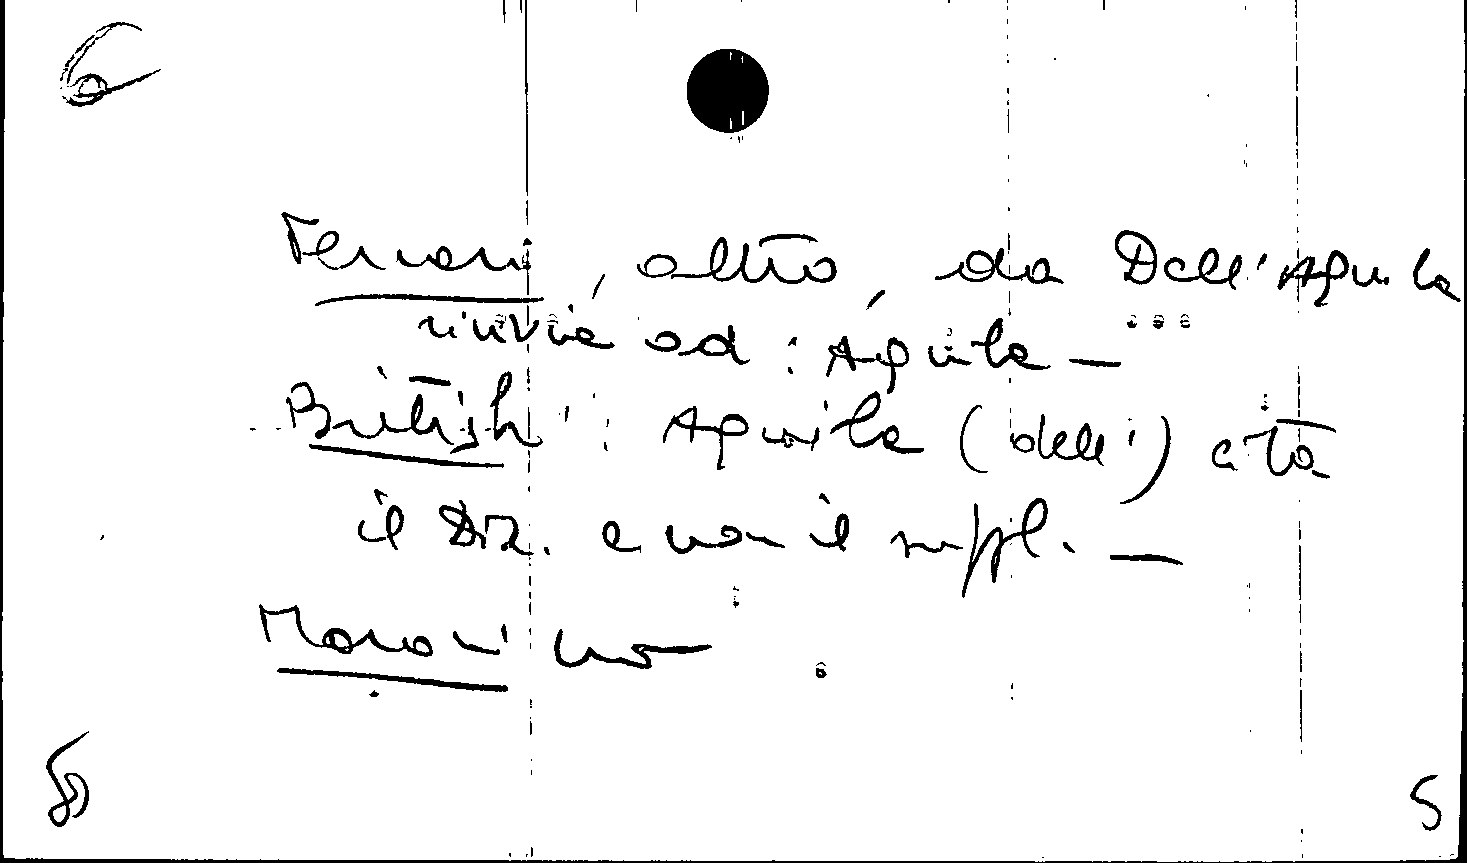 6
Ferrari, altro, da Dell'Aquila
rinvia ad: Aquila —
British: Aquila (dell') cita
il Diz. e non il suppl. —
no
S